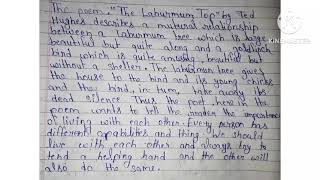 The poem, "The Laburnum Top" by Ted
Hughes describes a mutual relationship
between a laburnum tree which is large,
beautiful but quite along and a goldfinch
bird which is quite amusing, beautiful but
without a shelter. The laburnum tree gives
the house to the bird and its young chicks
and the bird, in turn, take away its
dead silence Thus the poet here in the
poem wants to tell the reader the importance
of living with each other. Every person has
different capabilites and thing. We should
live with each other and always try to
lend a helping hand and the other will
also do the same.
KINEMASTER